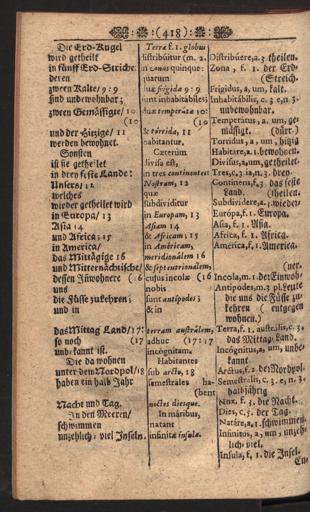 :(418):
Die Erd-Kugel
wird getheilt
in fünff Erd-Striche:
deren
zween Kalte/ 9: 9
sind unbewohnbar;
zween Gemässigte/ 10
(10
und der Hitzige/ 11
werden bewohnet.
Sonsten
ist sie getheilet
in drey feste Lande:
Unsers/ 12
welches
wieder getheilet wird
in Europam/ 13
Asia 14
und Africa; 15
in America/
das Mittägige 16
und Mitternächtische/
dessen Inwohnere (16
uns
die Füsse zukehren;
und in
das Mittag Land/ 17:
so noch (17
unbekannt ist.
Die da wohnen
unter dem Nordpol/ 18
haben ein halb Jahr
Nacht und Tag.
In den Meeren/
schwimmen
unzehlich-viel Inseln.
Terræ f. 1. globus
distribuitur (m. 2.
in zonas quinque:
quarum
duæ frigidæ 9: 9
sunt inhabitabiles;
duæ temperatæ 10:
(10
& torrida, 11
habitantur.
Cæterùm
divisa est,
in tres continentes:
Nostram, 12
quæ
subdividitur
in Europam, 13
Asiam 14
& Africam; 15
in Américam,
meridionálem 16
& septentrionálem;
cujus incolæ (16
nobis
sunt antípodes;
& in
terram austrálem,
adhuc (17: 17
incógnitam.
Habitantes
sub arcto, 18
semestrales ha-
(bent
noctes diesque.
In máribus,
natant
infinitæ insulæ.
Distribúere, a. 3 theilen.
Zona, f. 1. der Erd-
(Streich.
Frigidus, a, um, kalt.
Inhabitábilis, c. 3 e, n 3.
unbewohnbar.
Temperátus, a. um, ge-
mässigt. (dürr.)
Torridus, a, um, hitzig
Habitáre, a. 1. bewohnen.
Divísus, a, um, getheilet.
Tres, c. 3 ia, n. 3. drey.
Continens, f. 3. das feste
Land. (theilen.
Subdividere, a. 3 wieder-
Európa, f. 1. Europa.
Asia, f. 1. Asia.
Africa, f. 1. Africa.
América, f. 1. America.
Incola, m. 1. der Einwoh-
(ner.
Antípodes, m. 3 pl. Leute
die uns die Füsse zu-
kehren ( entgegen
wohnen.)
Terra, f. 1. australis, c. 3,
das Mittag. Land.
Incógnitus, a, um, unbe-
kannt.
Arctus, f. 2. der Nordpol.
Semestralis, c. 3. e, n. 3.
halbjährig
Nox. f. 3. die Nacht.
Dies, c. 5. der Tag.
Natáre, a. 1. schwimmen.
Infinitus, a, um, unzeh-
lich-viel.
Insula, f. 1. die Insel.